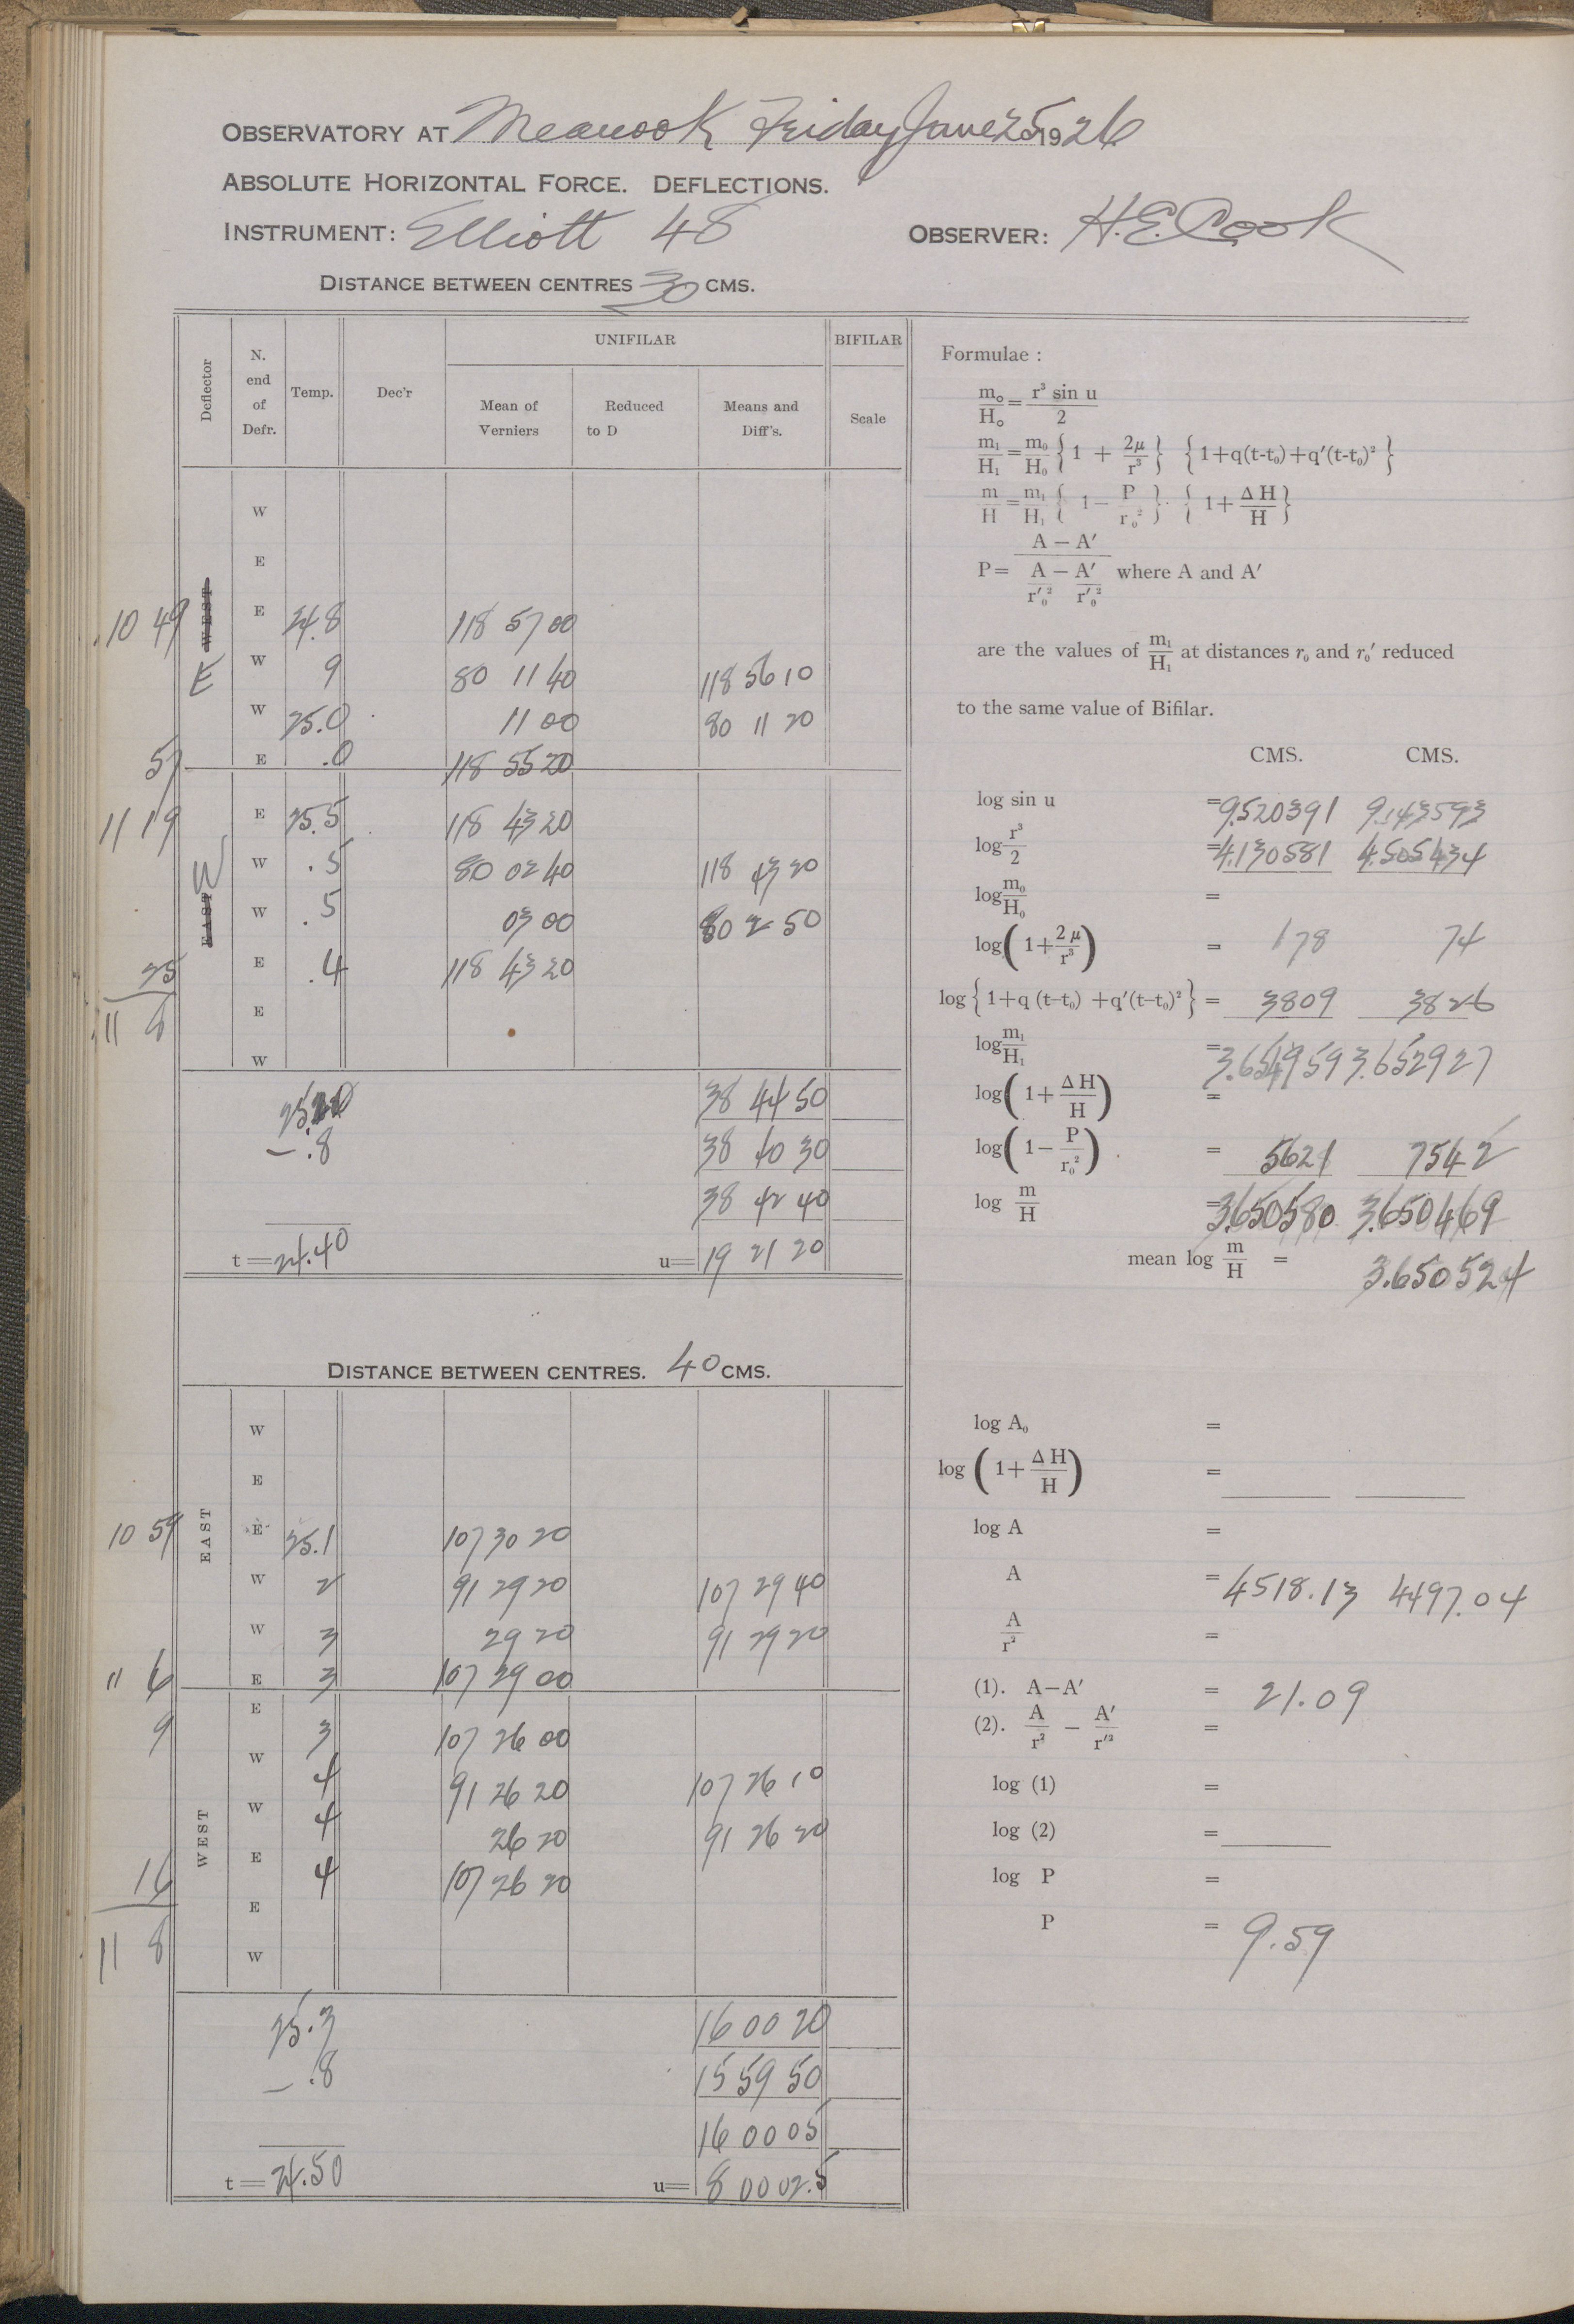 OBSERVATORY AT Meanook Friday June 25 1926
ABSOLUTE HORIZONTAL FORCE. DEFLECTIONS.
INSTRUMENT: Elliott 48 OBSERVER: H.E. Cook
DISTANCE BETWEEN CENTRES 30 CMS.
Deflector N. end of Defr. Temp. Dec'r UNIFILAR BIFILAR
Mean of Verniers Reduced to D Means and Diff's. Scale
W
E
10 49 WEST E 24.8 118 57 00
E W 9 80 11 40 118 56 10
W 25.0 11 00 80 11 20
57 E .0 118 55 20
11 19 E 25.5 118 43 20
EAST W W .5 80 02 40 118 43 20
W .5 03 00 80 2 50
25 E .4 118 43 20
11 8 E
W
25.20 38 44 50
– .8 38 40 30
38 42 40
t = 24.40 u = 19 21 20
DISTANCE BETWEEN CENTRES. 40 CMS.
W
E
10 59 EAST E 25.1 107 30 20
W 2 91 29 20 107 29 40
W 3 29 20 91 29 20
11 6 E 3 107 29 00
9 E 3 107 26 00
W 4 91 26 20 107 26 10
WEST W 4 26 20 91 26 20
16 E 4 107 26 20
E
11 8 W
25.3 16 00 20
– .8 15 59 50
16 00 05
t = 24.50 u = 8 00 02.5
Formulae :
m₀/H₀ = r³ sin u/2
m₁/H₁ = m₀/H₀ {1 + 2μ/r³} {1+q(t-t₀)+q′(t-t₀)²}
m/H = m₁/H₁ {1 – P/r₀²} · {1+ ΔH/H}
P = (A – A′)/(A/r′₀² – A′/r′₀²) where A and A′
are the values of m₁/H₁ at distances r₀ and r₀′ reduced
to the same value of Bifilar.
CMS. CMS.
log sin u = 9.520391 9.143593
log r³/2 = 4.130581 4.505434
log m₀/H₀ =
log(1+ 2μ/r³) = 178 74
log{1+q (t–t₀) +q′(t–t₀)²} = 3809 3826
log m₁/H₁ = 3.654959 3.652927
log(1+ ΔH/H) =
log(1– P/r₀²) = 5621 7542
log m/H = 3.650580 3.650469
mean log m/H = 3.650524
log A₀ =
log (1+ ΔH/H) =
log A =
A = 4518.13 4497.04
A/r² =
(1). A–A′ = 21.09
(2). A/r² – A′/r′² =
log (1) =
log (2) =
log P =
P = 9.59